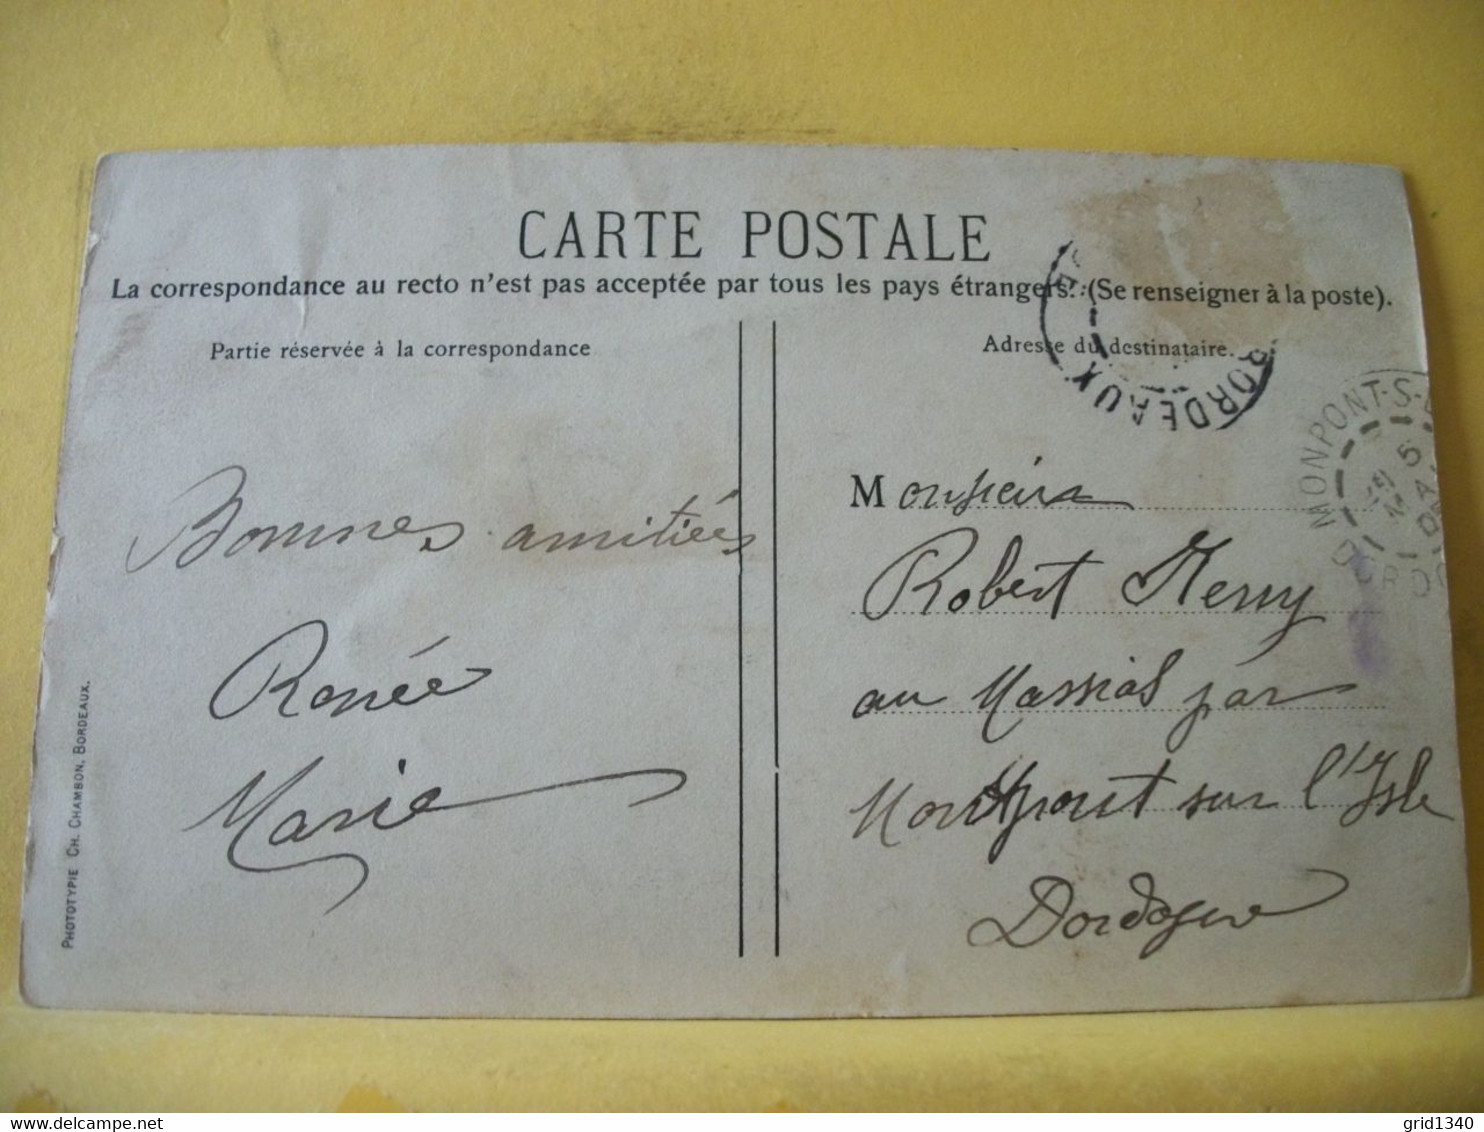 CARTE POSTALE
La correspondance au recto n'est pas acceptée par tous les pays étrangers. (Se renseigner à la poste).
Partie réservée à la correspondance
Bonnes amitiés
Renée
Marie
PHOTOTYPIE CH. CHAMBON, BORDEAUX.
Adresse du destinataire.
BORDEAUX
MONPONT-S-
Monsieur
Robert
au Massias par
Montpont sur l'Isle
Dordogne
grid1340